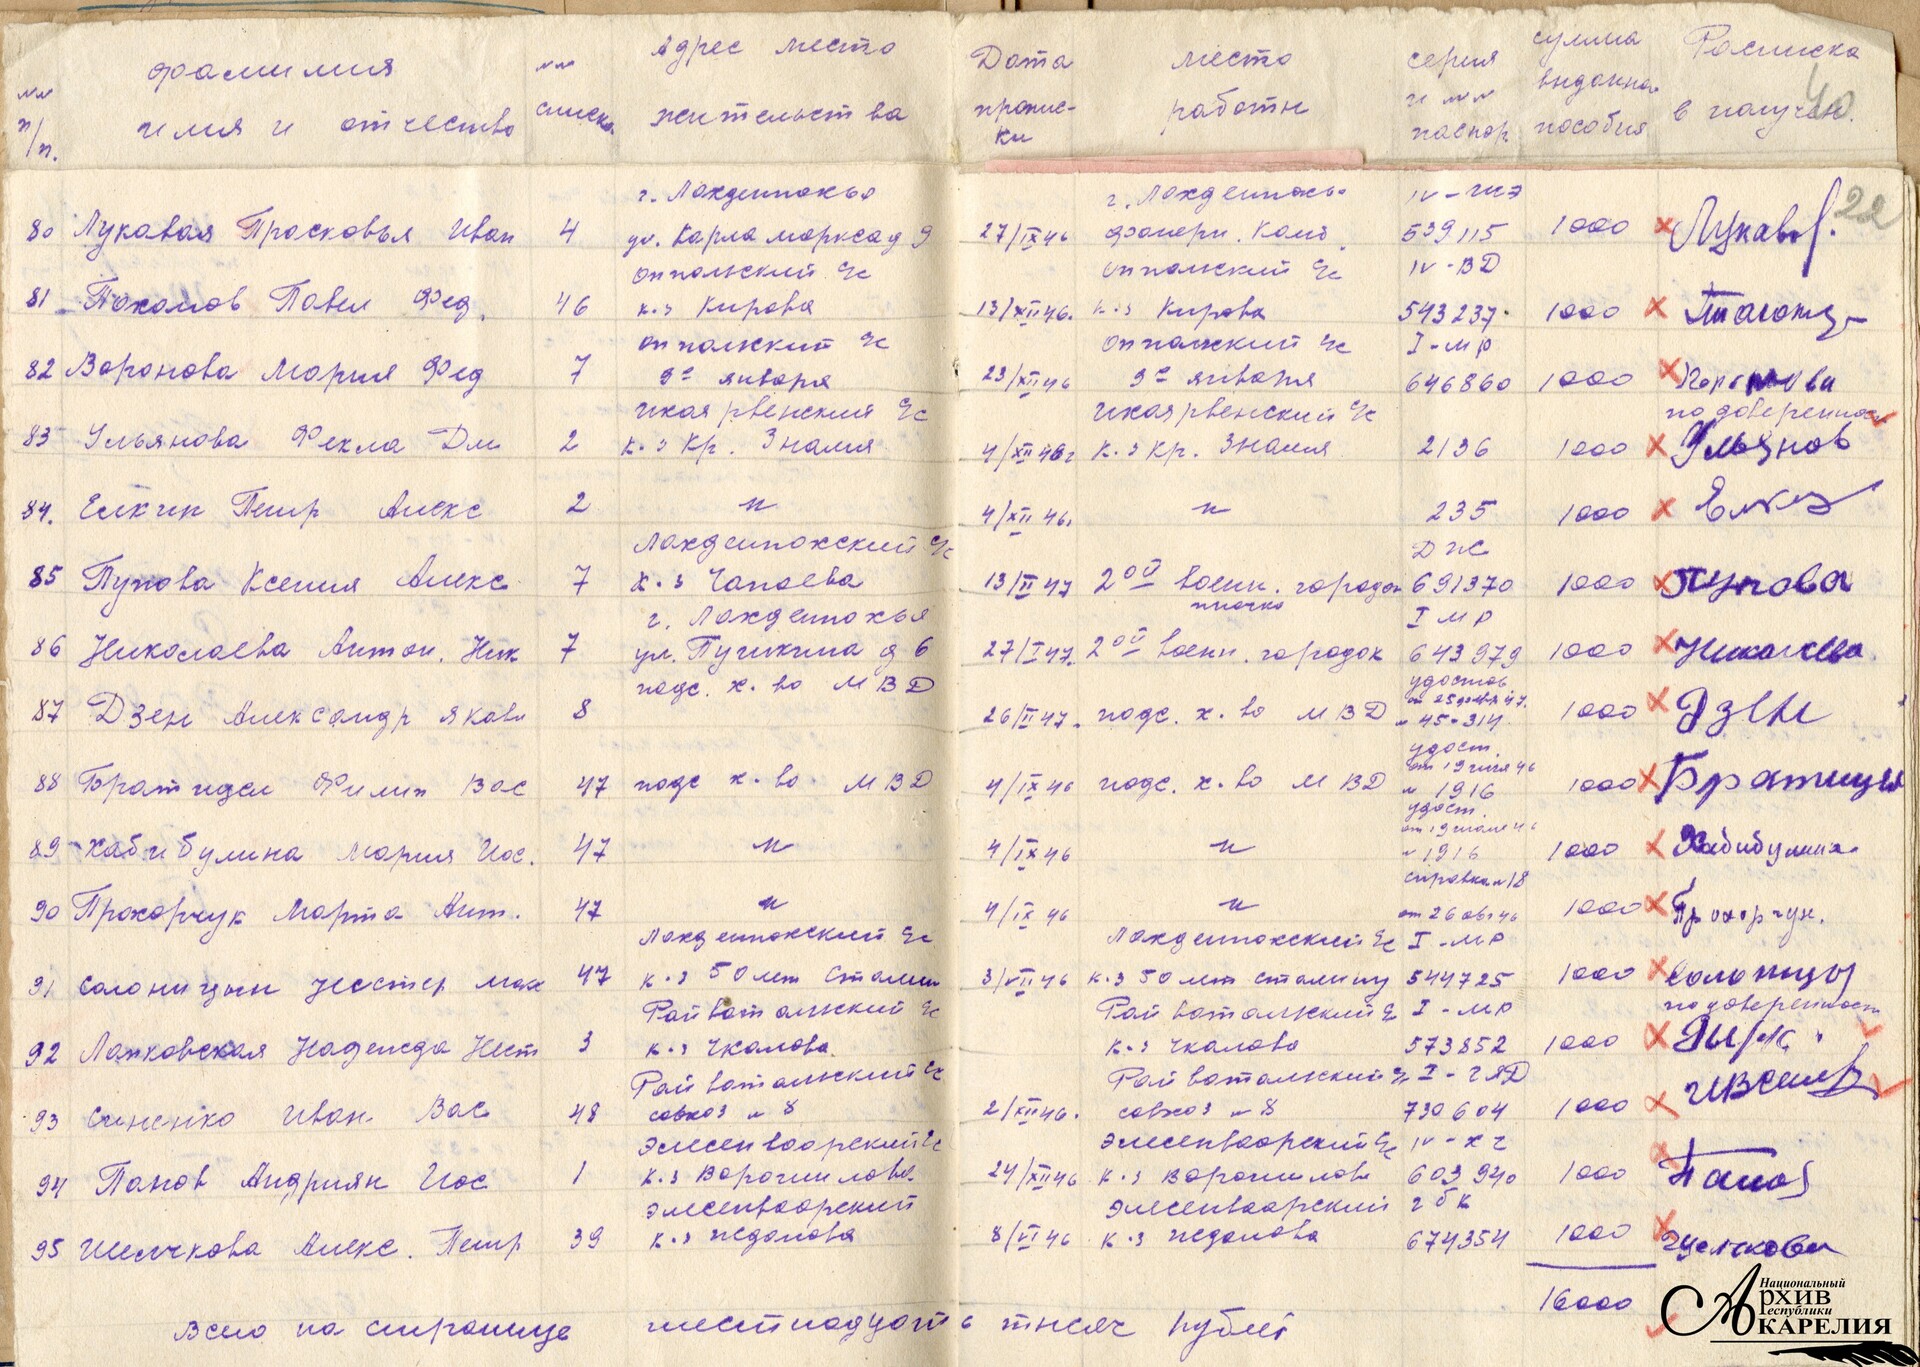 №№ п/п. фамилия имя и отчество №№ списка Адрес место жительства Дата пропис-ки место работы серия и №№ паспор сумма выданна пособия Росписка в получен.
40
22
г. Лахденпохья г. Лахденпохья IV-
80 Лукавая Прасковья Иван 4 ул. Карла маркса д 9 27/IX 46 фанерн. Комб. 539115 1000 × Лукав
куркиёкский IV-ВД
81 Пахомов Павел Фед. 46 к-з Кирова 13/XII 46. к-з Кирова 543237 1000 ×
I-МР
82 Воронова Мария Фед 7 9е января 23/XII 46 9е января 646860 1000 ×
по доверенно
83 Ульянова Фекла Дм 2 к-з Кр. Знамя 4/XII 46г к-з Кр. Знамя 2136 1000 × Ульянов
84. Елкин Петр Алекс 2 〃 4/XII 46. 〃 235 1000 × Елки
Лахденпохский с/с ДЖ
85 Пупова Ксения Алекс 7 к-з Чапаева 13/II 47 2ой военн. городок 691370 1000 × Пупова
г. Лахденпохья I МР
86 Николаева Антон. Ник 7 ул. Пушкина д 6 27/I 47. 2ой военн. городок 643979 1000 × Николаева
подс. х-во МВД удостов
87 Дзен Александр Яковл 8 26/II 47. подс. х-во МВД № 45-314 1000 × Дзен
удост.
88 Братидел Филип Вас 47 подс х-во МВД 4/IX 46 подс. х-во МВД № 1916 1000 ×
удост.
89 Хабибулина Мария Иос. 47 〃 4/IX 46 〃 № 1916 1000 × Хабибулина
справка № 18
90 Прохорчук Марта Ант. 47 〃 4/IX 46 〃 от 26 авг 46 1000 × Прохорчук.
Лахденпохский с/с Лахденпохский с/с I-МР
91 Солоницын Нестер Мак 47 к-з 50 лет Сталин 3/VII 46 к-з 50 лет сталину 544725 1000 ×
Райватальский с/с Райватальский с/с I-МР по доверенност
92 Лапковская Надежда Нест 3 к-з Чкалова к-з Чкалова 573852 1000 ×
Райватальский с/с Райватальский с/с I-ГЯД
93 Синенко Иван Вас 48 совхоз № 8 2/XII 46. совхоз № 8 730604 1000 ×
Элисенваарский с/с Элисенваарский с/с IV-ХГ
94 Панов Андриян Иос 1 к-з Ворошилова 24/XII 46 к-з Ворошилова 603940 1000 × Панов
Элисенваарский Элисенваарский
95 Шелчкова Алекс. Петр 39 к-з Жданова 8/VI 46 к-з Жданова 674354 1000 ×
16000
Всего на странице шестнадцать тысяч рублей
Национальный
АРХИВ
Республики
КАРЕЛИЯ